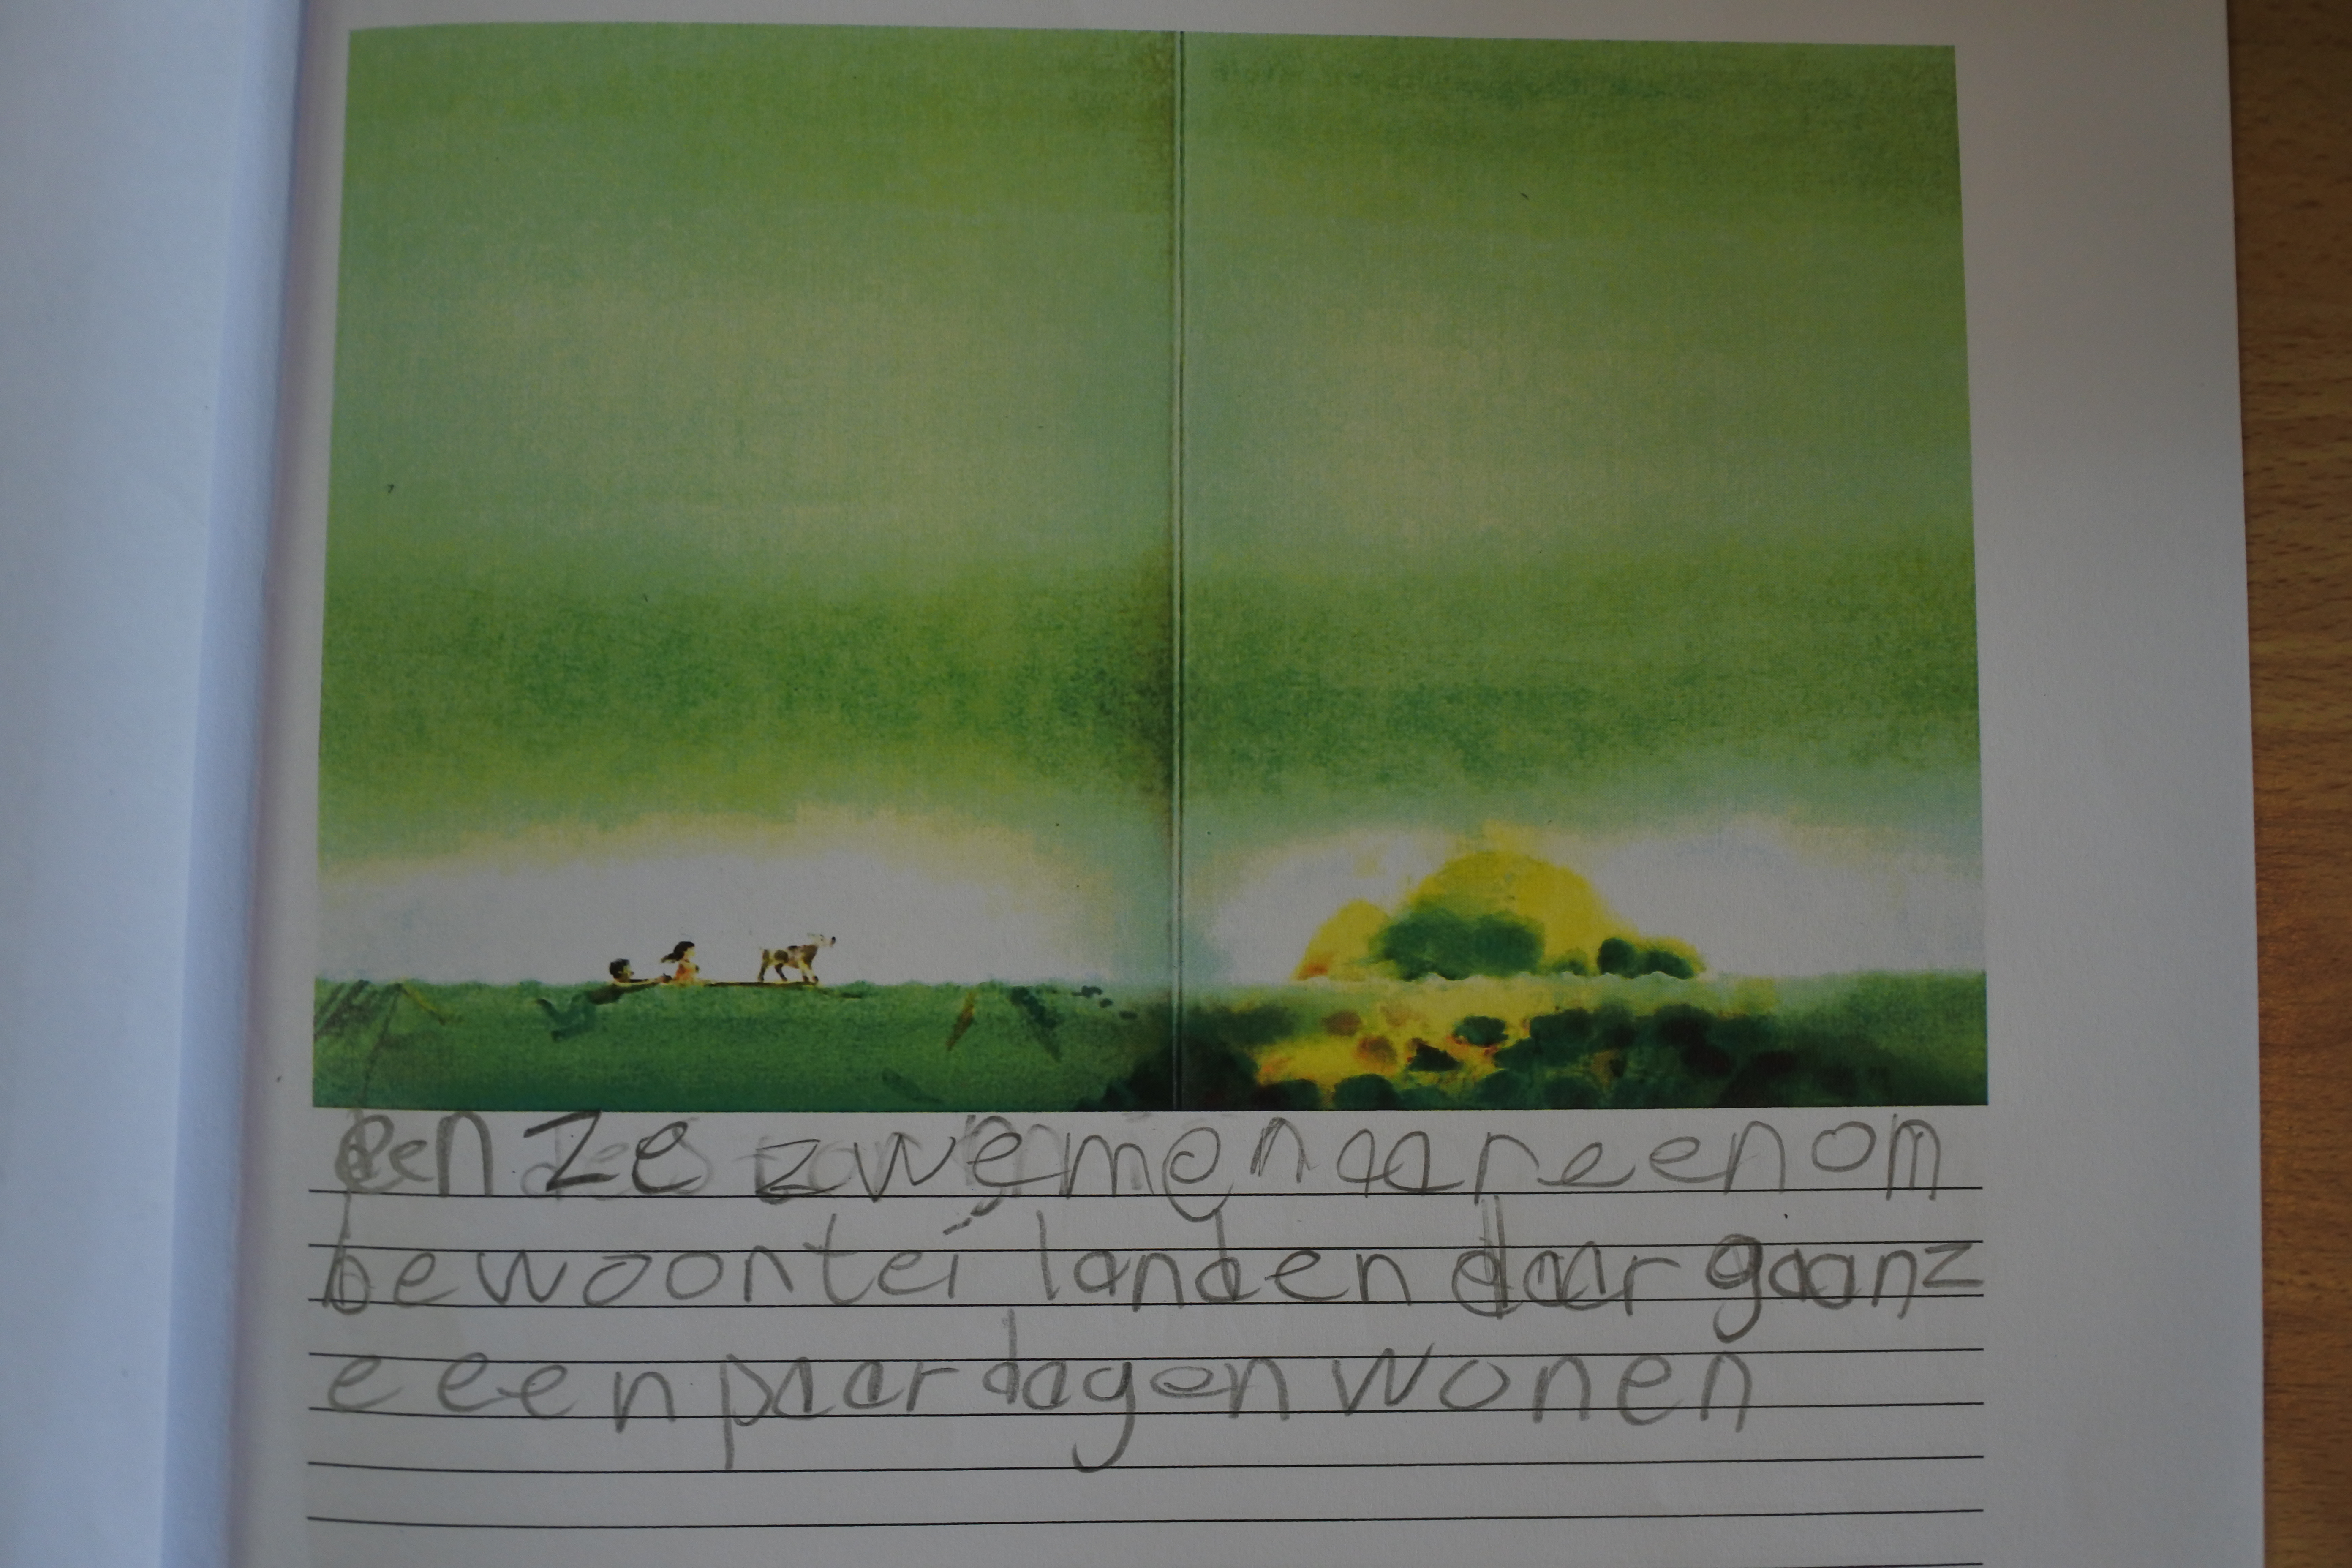 en ze zwemen naar een om
bewoont ei landen daar gaan z
e een paar dagen wonen